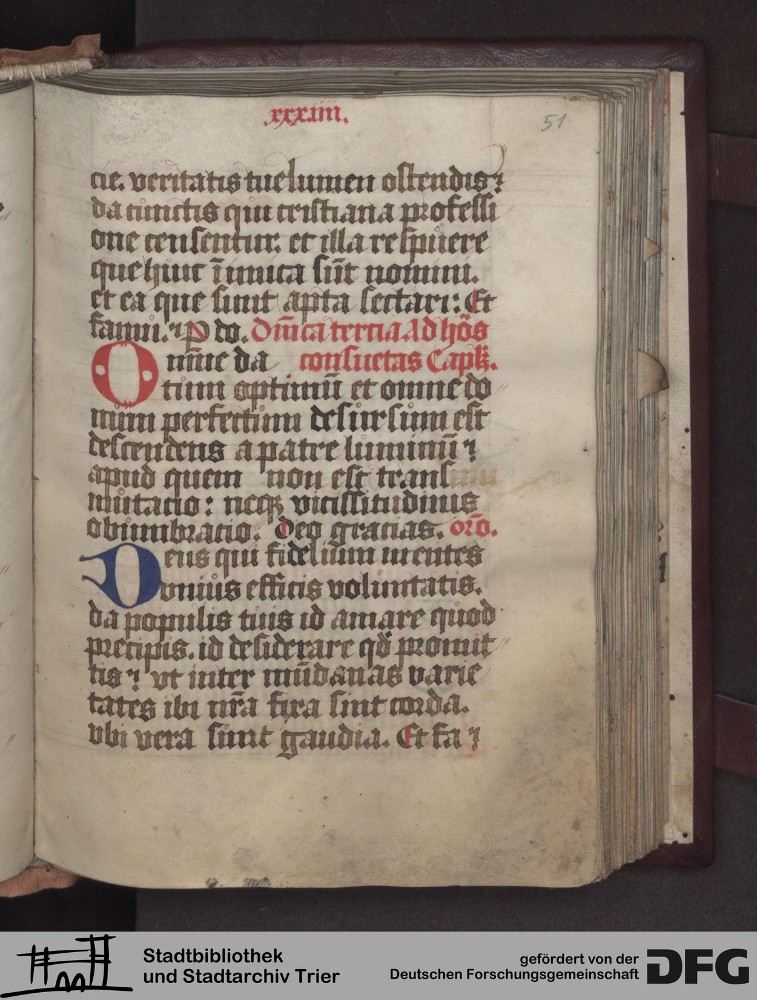 xxxiiii.
51
cie. veritatis tue lumen ostendis ⁊
da cunctis qui cristiana professi
one censentur. et illa respuere
que huic inimica sūt nomini.
et ea que sunt apta sectari: Et
famu. ⁊ P do. Dnīca tercia Ad hōs
Omne da consuetas Caplʼ.
tum optimū et omne do
num perfectum desursum est
descendens a patre luminū ⁊
apud quem non est trans
mutacio: neqꝫ vicissitudinis
obumbracio. Deo gracias. orō.
Deus qui fidelium mentes
vnius efficis voluntatis.
da populis tuis id amare quod
precipis. id desiderare qd̄ promit
tis ⁊ vt inter mūdanas varie
tates ibi nr̄a fixa sint corda.
vbi vera sunt gaudia. Et fa ⁊
Stadtbibliothek
und Stadtarchiv Trier
gefördert von der
Deutschen Forschungsgemeinschaft
DFG